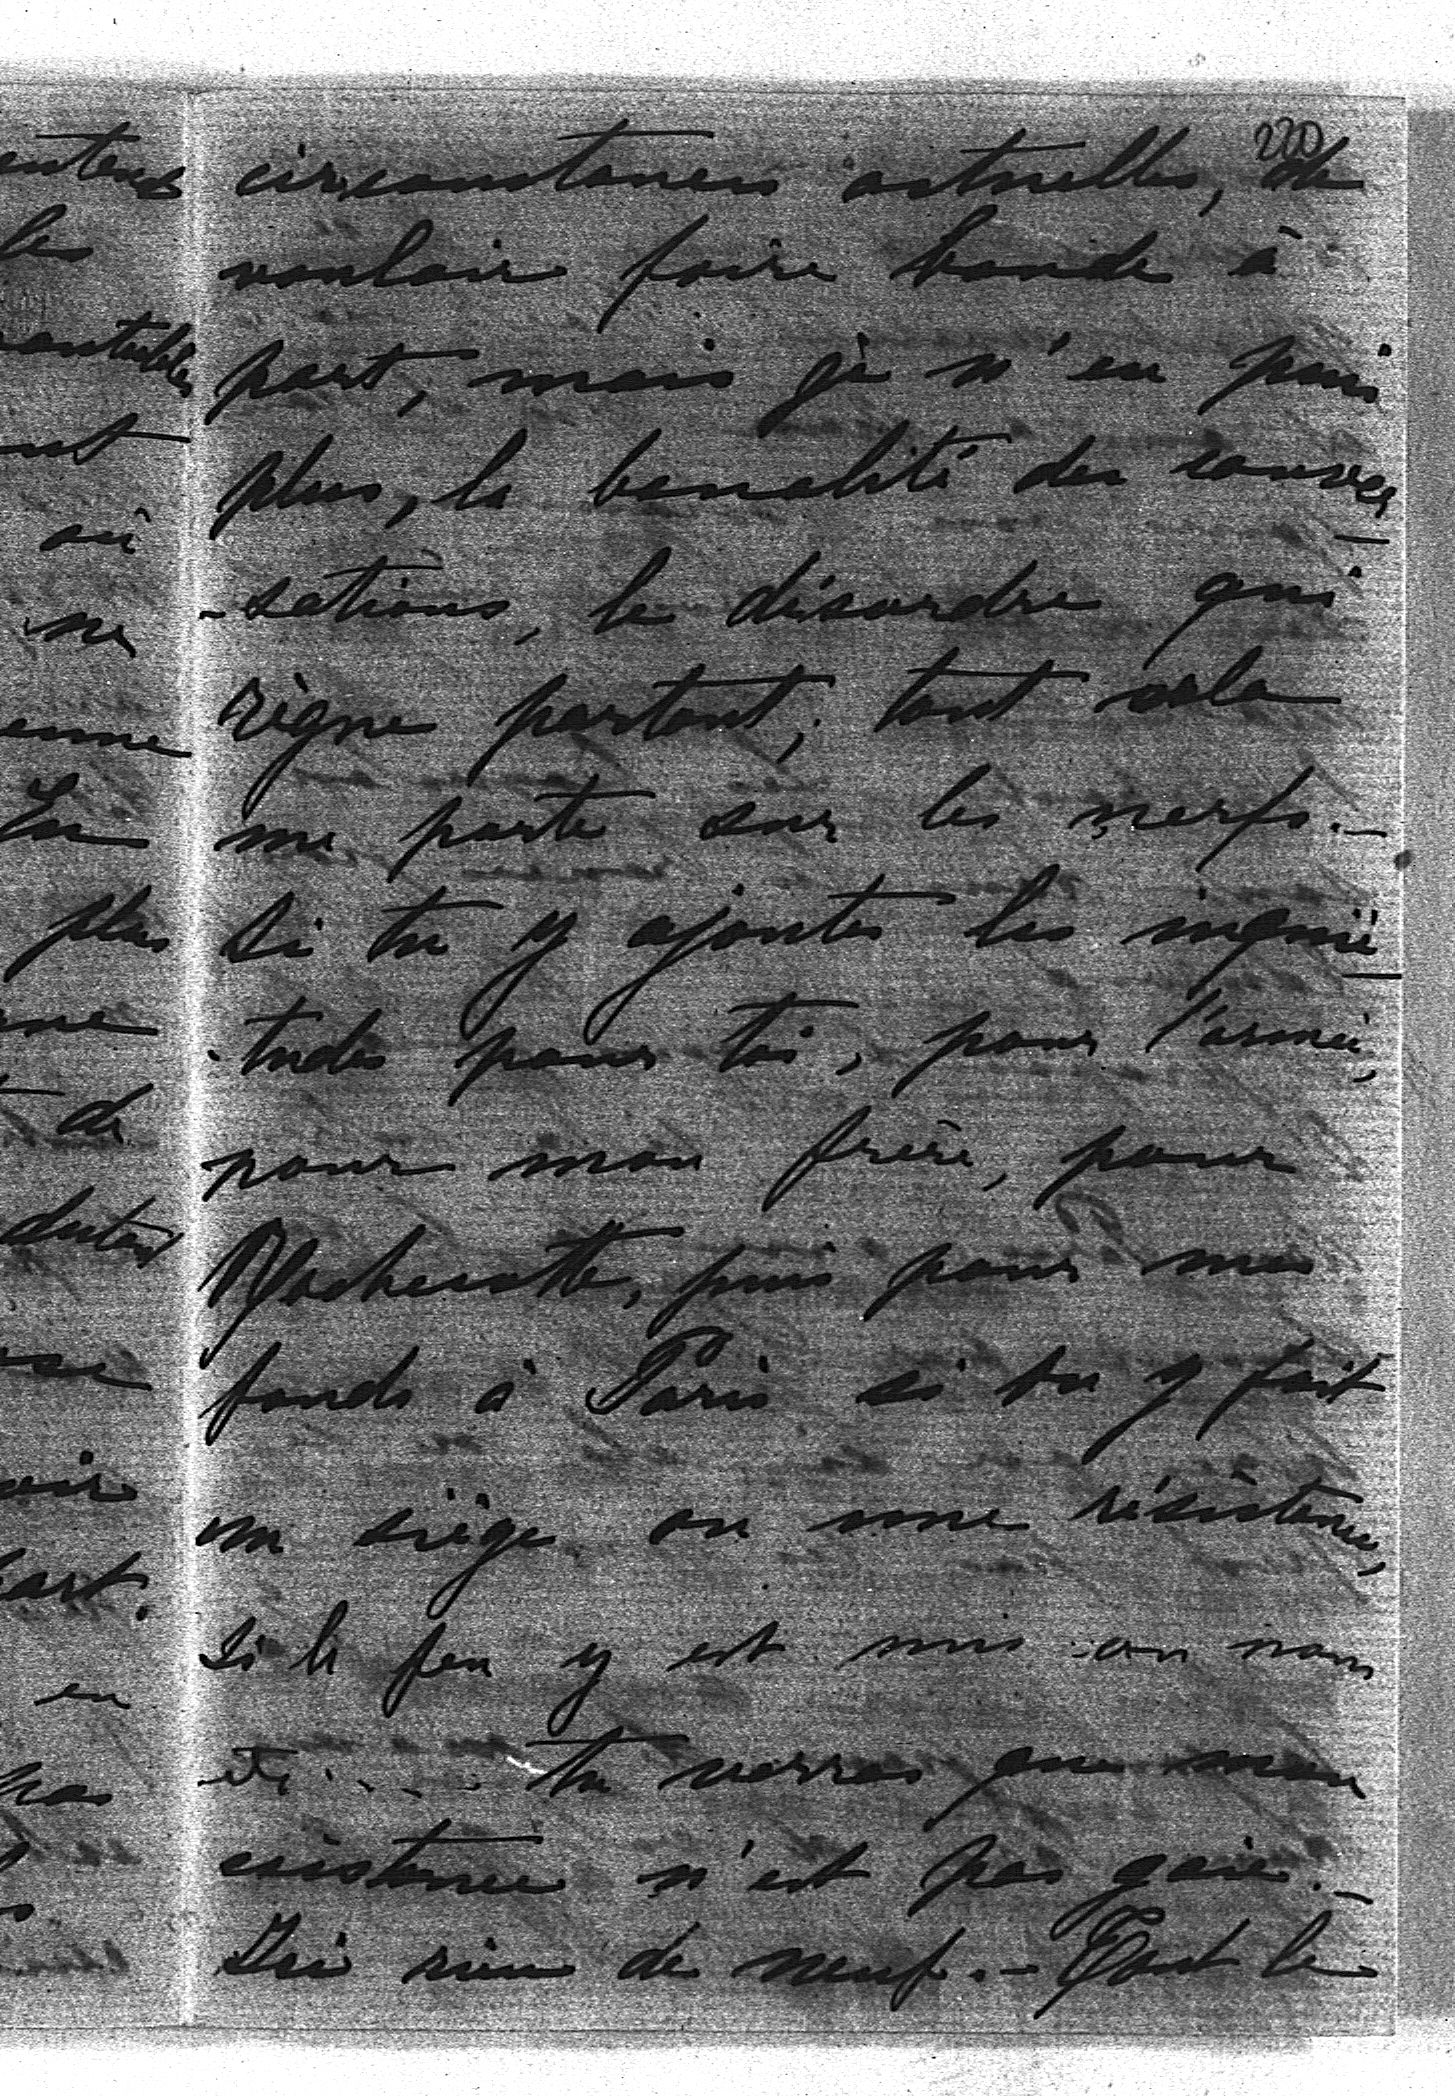 220
circonstances actuelles, de
vouloir faire bande à
part, mais je n'en puis
plus, la banalité des conver
-sations, le désordre qui
règne partout, tout cela
me porte sur les nerfs. -
Si tu y ajoutes les inquié
-tudes pour toi, pour l'armée,
pour mon frère, pour
puis pour mes
fonds à Paris si on y fait
un siège ou une résistance,
si le feu y est mis ou non
etc. . . . tu verras que mon
existence n'est pas gaie. -
Ici rien de neuf. - Tout le
ne
plus
de
en
pas